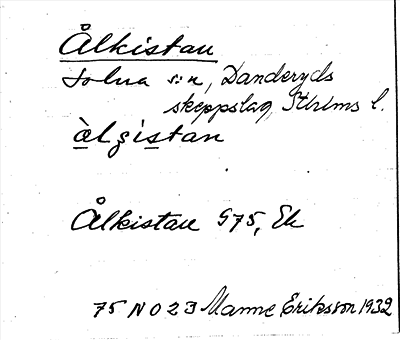 Ålkistan
Solna s:n, Danderyds
skeppslag, Sthlms l.
àlʒistan
Ålkistan G75, Ek
75 N O 23 Manne Eriksson 1932